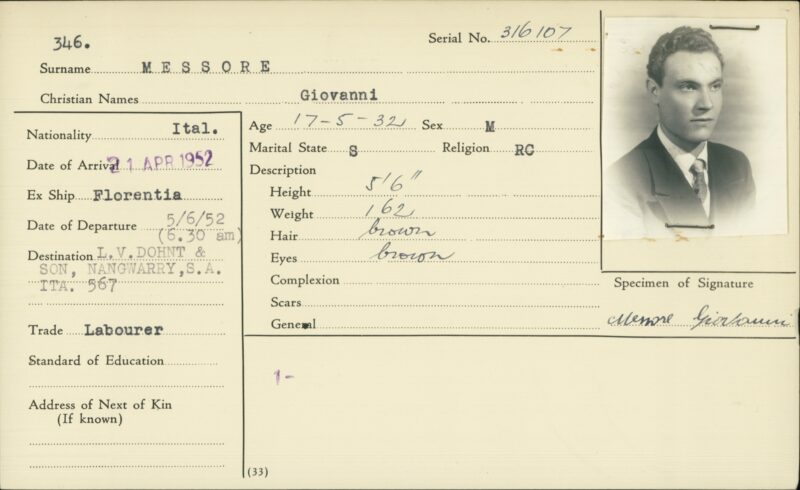 346.
Serial No. 316107
Surname MESSORE
Christian Names Giovanni
Nationality Ital.
Date of Arrival 21 APR 1952
Ex Ship Florentia
Date of Departure 5/6/52
(6.30 am)
Destination L.V.DOHNT &
SON, NANGWARRY,S.A.
ITA. 567
Trade Labourer
Standard of Education
Address of Next of Kin
(If known)
Age 17-5-32 Sex M
Marital State S Religion RC
Description
Height 5'6"
Weight 162
Hair brown
Eyes brown
Complexion
Scars
General
1-
(33)
Specimen of Signature
Messore Giovanni